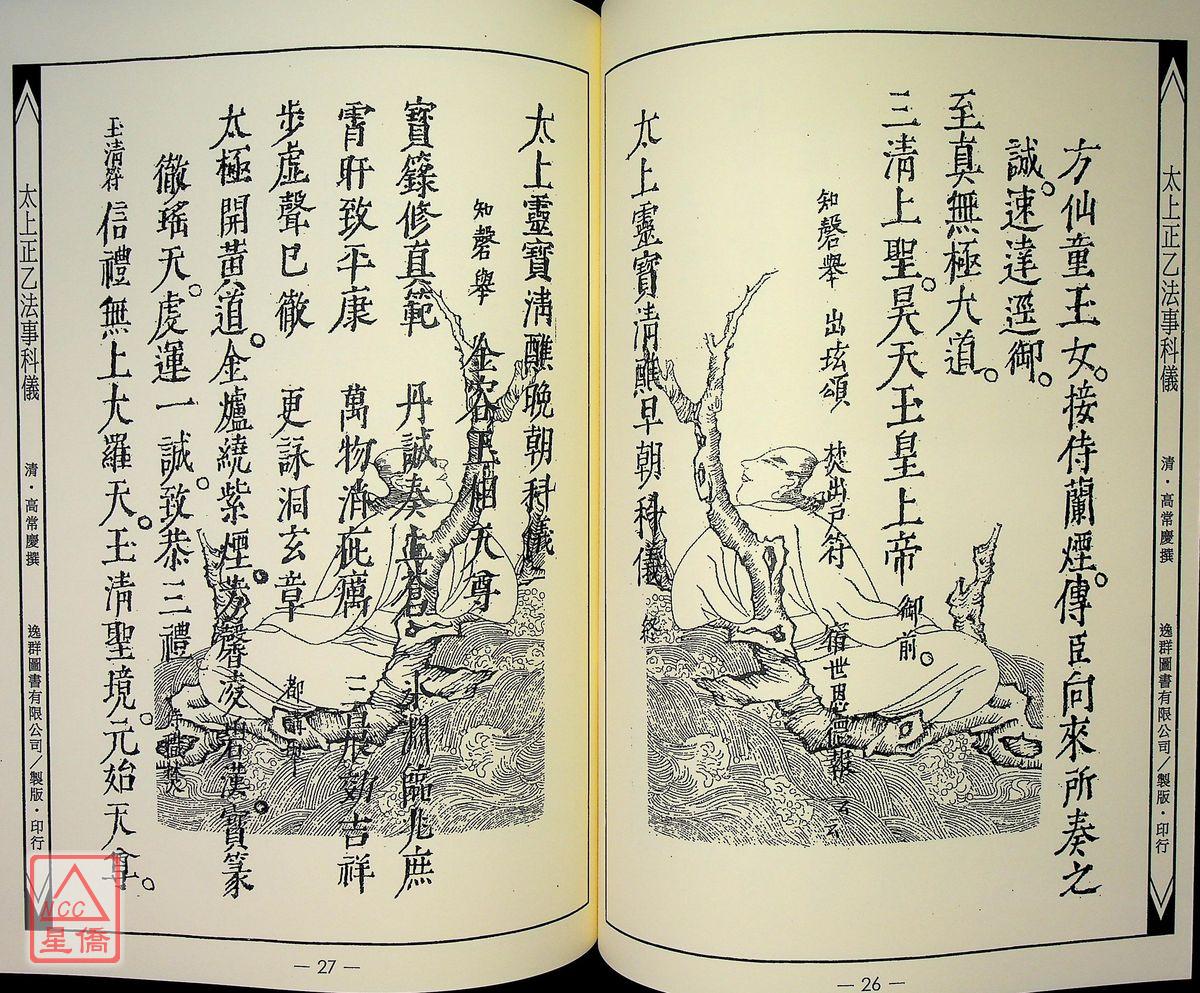 太上正乙法事科儀 清·高常慶撰 逸群圖書有限公司／製版·印行
方仙童玉女。接侍蘭煙。傳臣向來所奏之
誠。速達逕御。
至真無極大道。
三清上聖。昊天玉皇上帝 御前。
知磬舉 出玄頌 焚出戶符 宿世恩德報 云云
太上靈寶清醮早朝科儀 終
— 26 —
太上靈寶清醮晚朝科儀
知磬舉 金容玉相天尊
寶籙修真範 丹誠奏上蒼 氷淵臨兆庶
霄旰致平康 萬物消疵癘 三晨効吉祥
步虛聲已徹 更詠洞玄章 都講舉
太極開黃道。金爐繞紫煙。芳馨凌碧漢。寶篆
徹瑤天。虔運一誠。致恭三禮 侍職焚
玉清符 信禮無上大羅天。玉清聖境。元始天尊。
太上正乙法事科儀 清·高常慶撰 逸群圖書有限公司／製版·印行
— 27 —
NCC
星僑